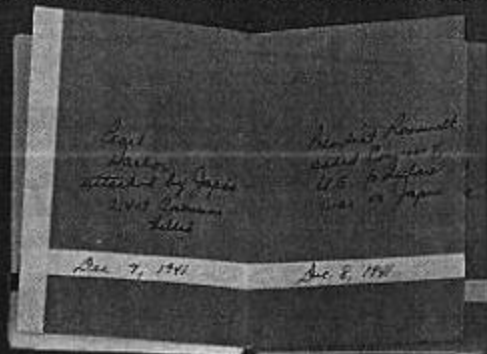 Pearl
Harbor
attacked by Japs
killed
Dec 7, 1941
President Roosevelt
asked Congress of
U.S. to declare
war on Japan
Dec. 8, 1941